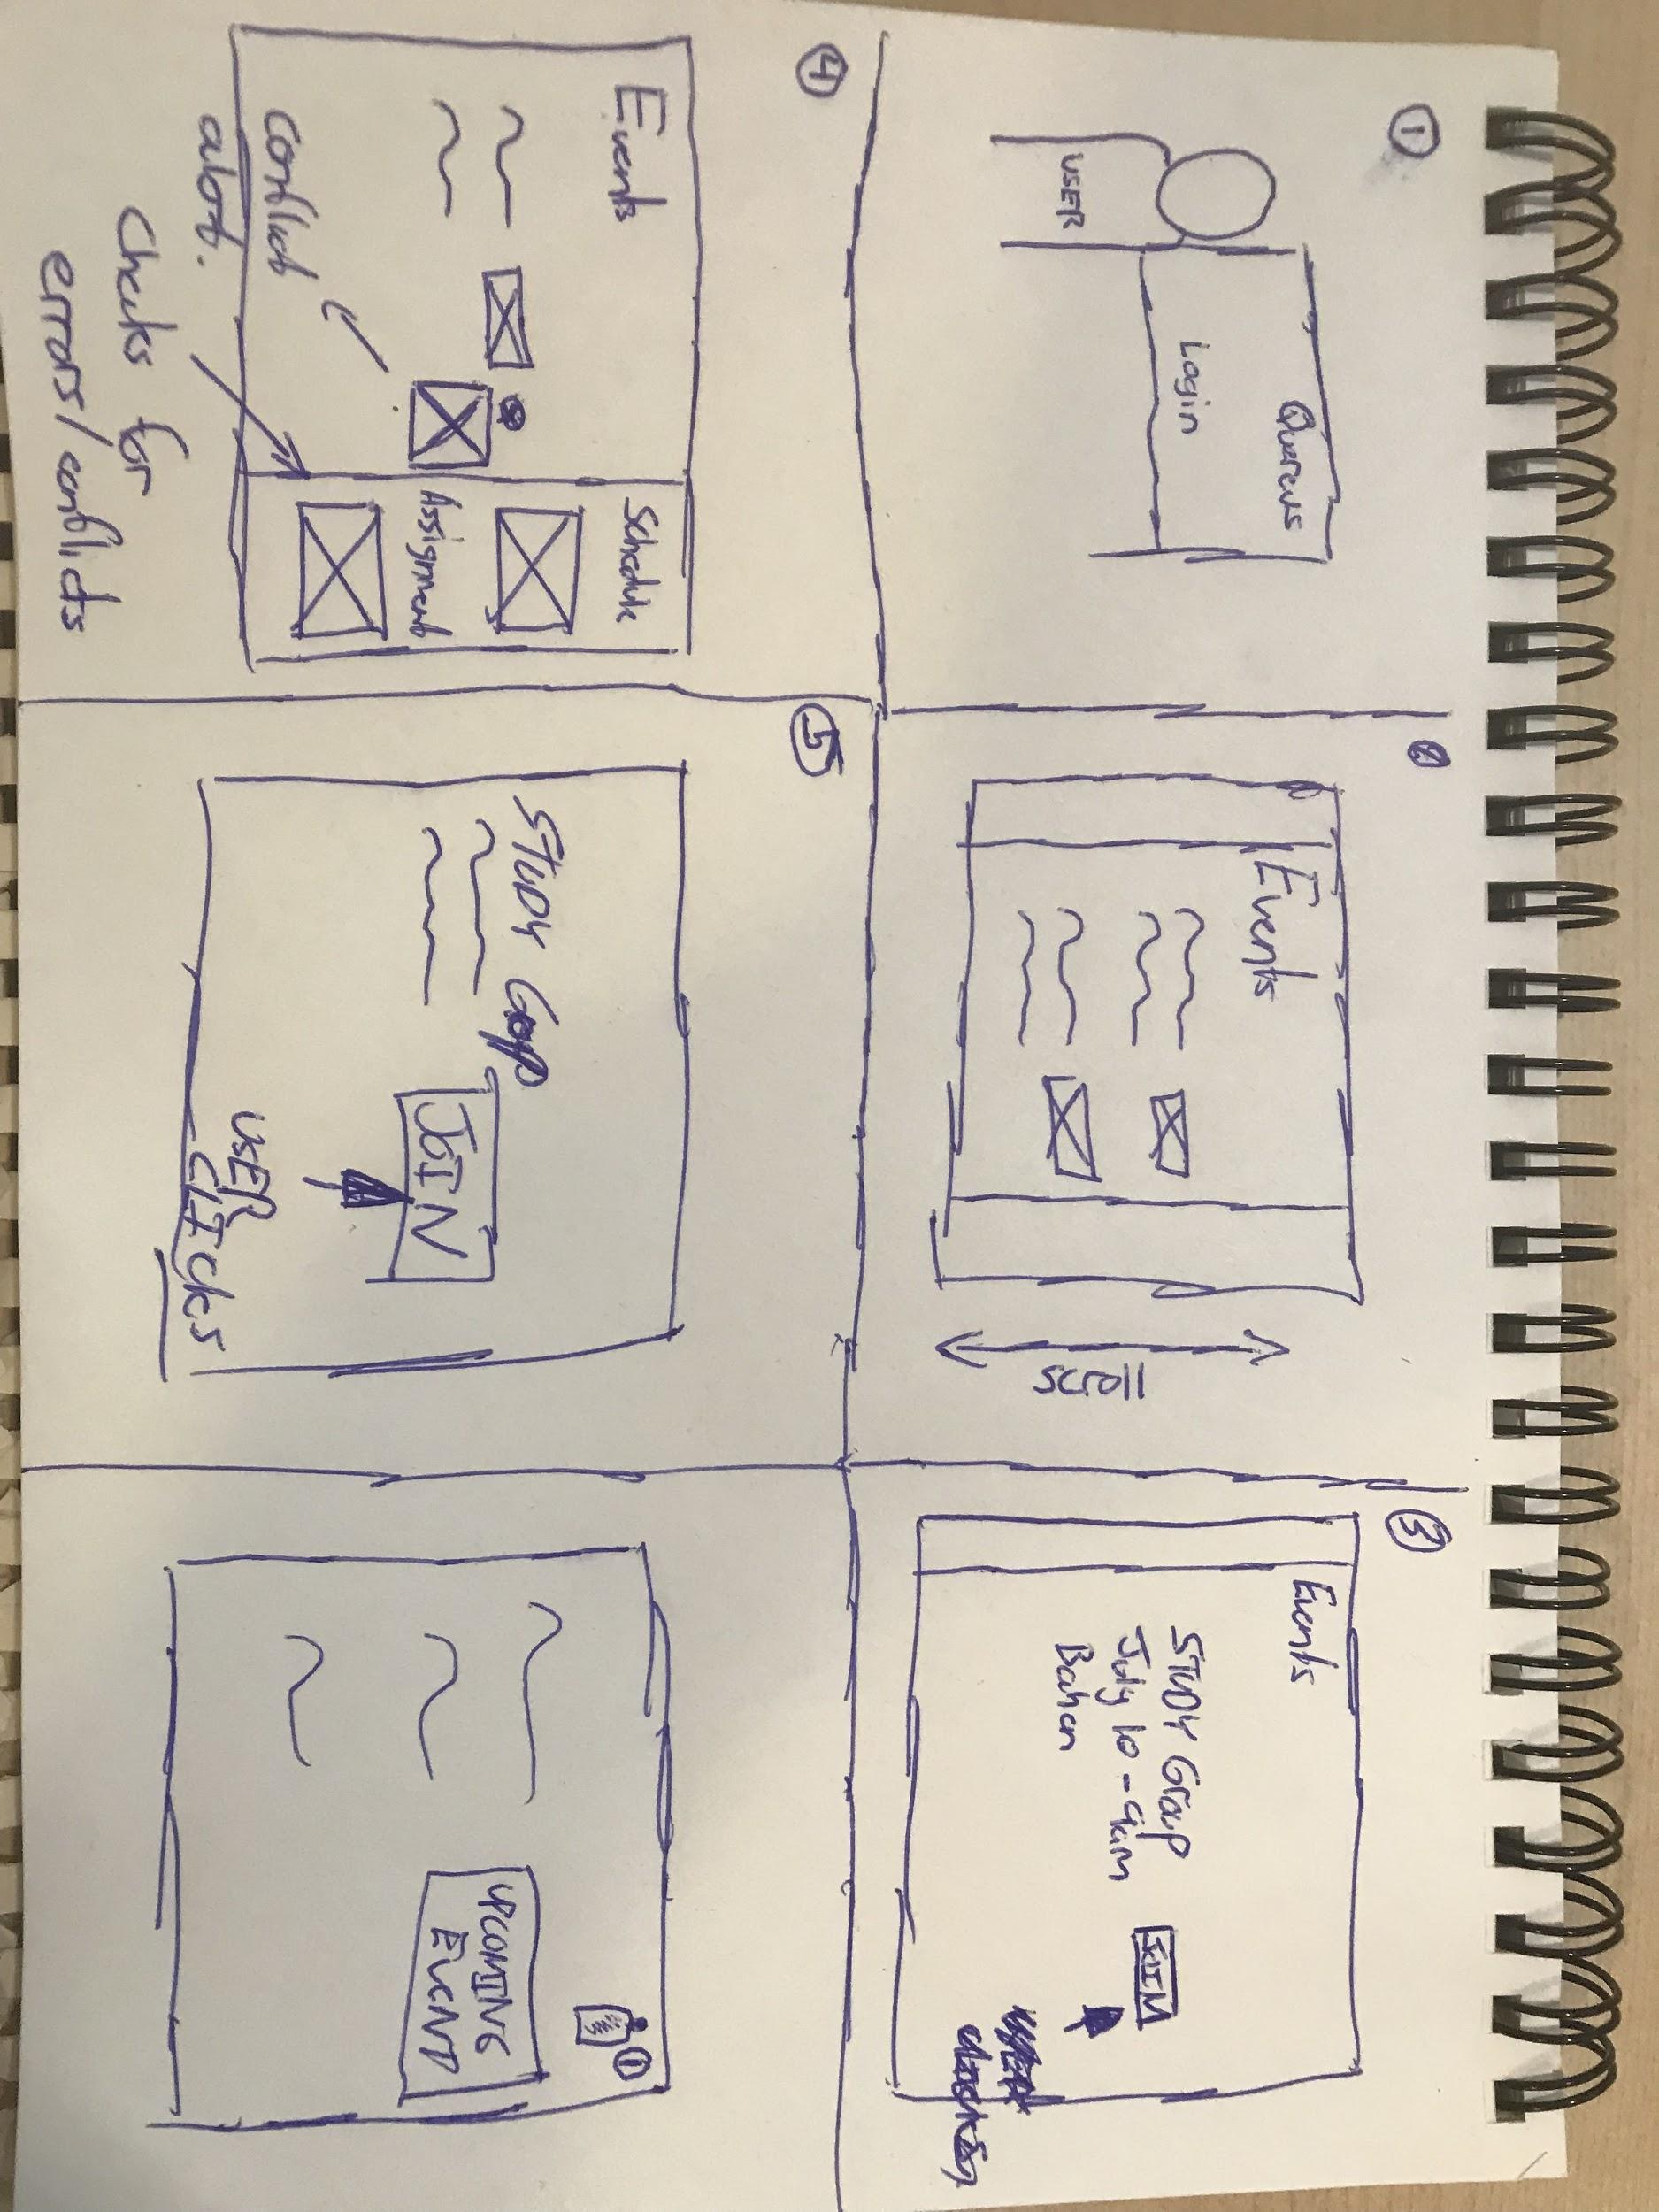 ①
Quercus
Login
USER
②
Events
Scroll
③
Events
STUDY Group
July 10 - 9am
Bahen
JOIN
④
Events
Schedule
Assignment
conflict
abot.
Checks for
errors/conflicts
⑤
STUDY Group
JOIN
USER
CLICKS
①
UPCOMING
EVENT